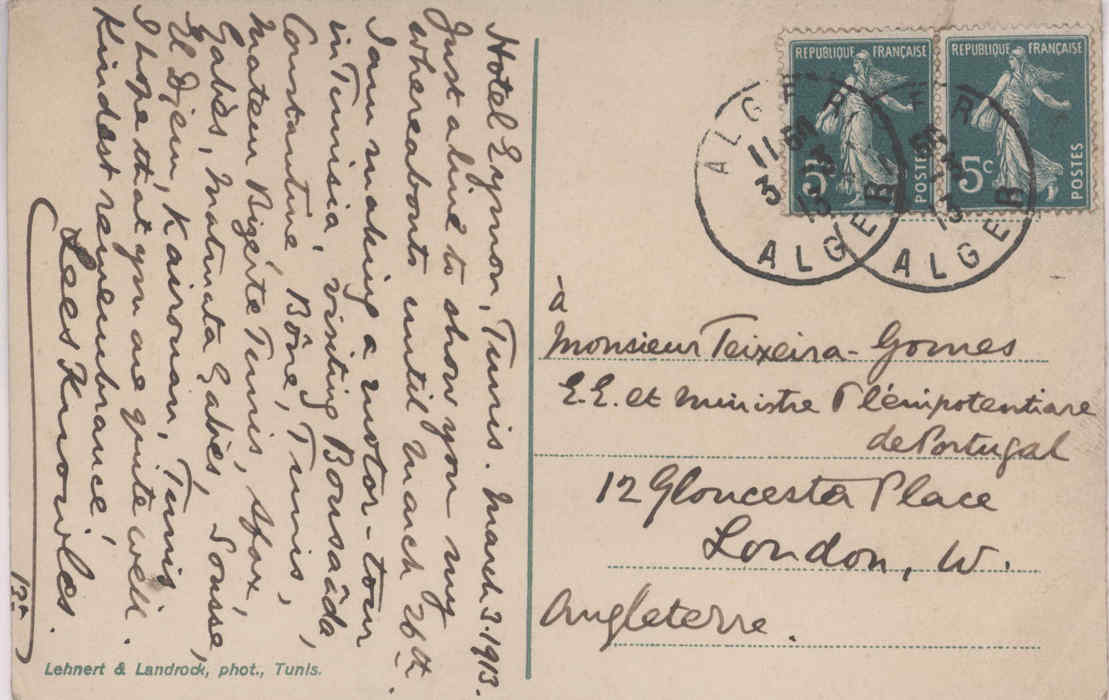 Hotel Eymon, Tunis. March 3. 1913.
Just a line to show you my
whereabouts until March 26th.
I am making a motor-tour
in Tunisia, visiting Bousaâda,
Constantine, Bône, Tunis,
Mateur Bizérte Tunis, Sfax,
Gabès, Matmata Gabès, Sousse,
El Djem, Kairouan, Tunis
I hope that you are quite well.
Kindest remembrance,
Lees Knowles.
REPUBLIQUE FRANÇAISE
5c
POSTES
REPUBLIQUE FRANÇAISE
5c
POSTES
ALGER
11
3
13
ALGER
ALGER
3
13
ALGER
à
Monsieur Teixeira-Gomes
E.E. et Ministre Plénipotentiare
de Portugal
12 Gloucester Place
London, W.
Angleterre.
Lehnert & Landrock, phot., Tunis.